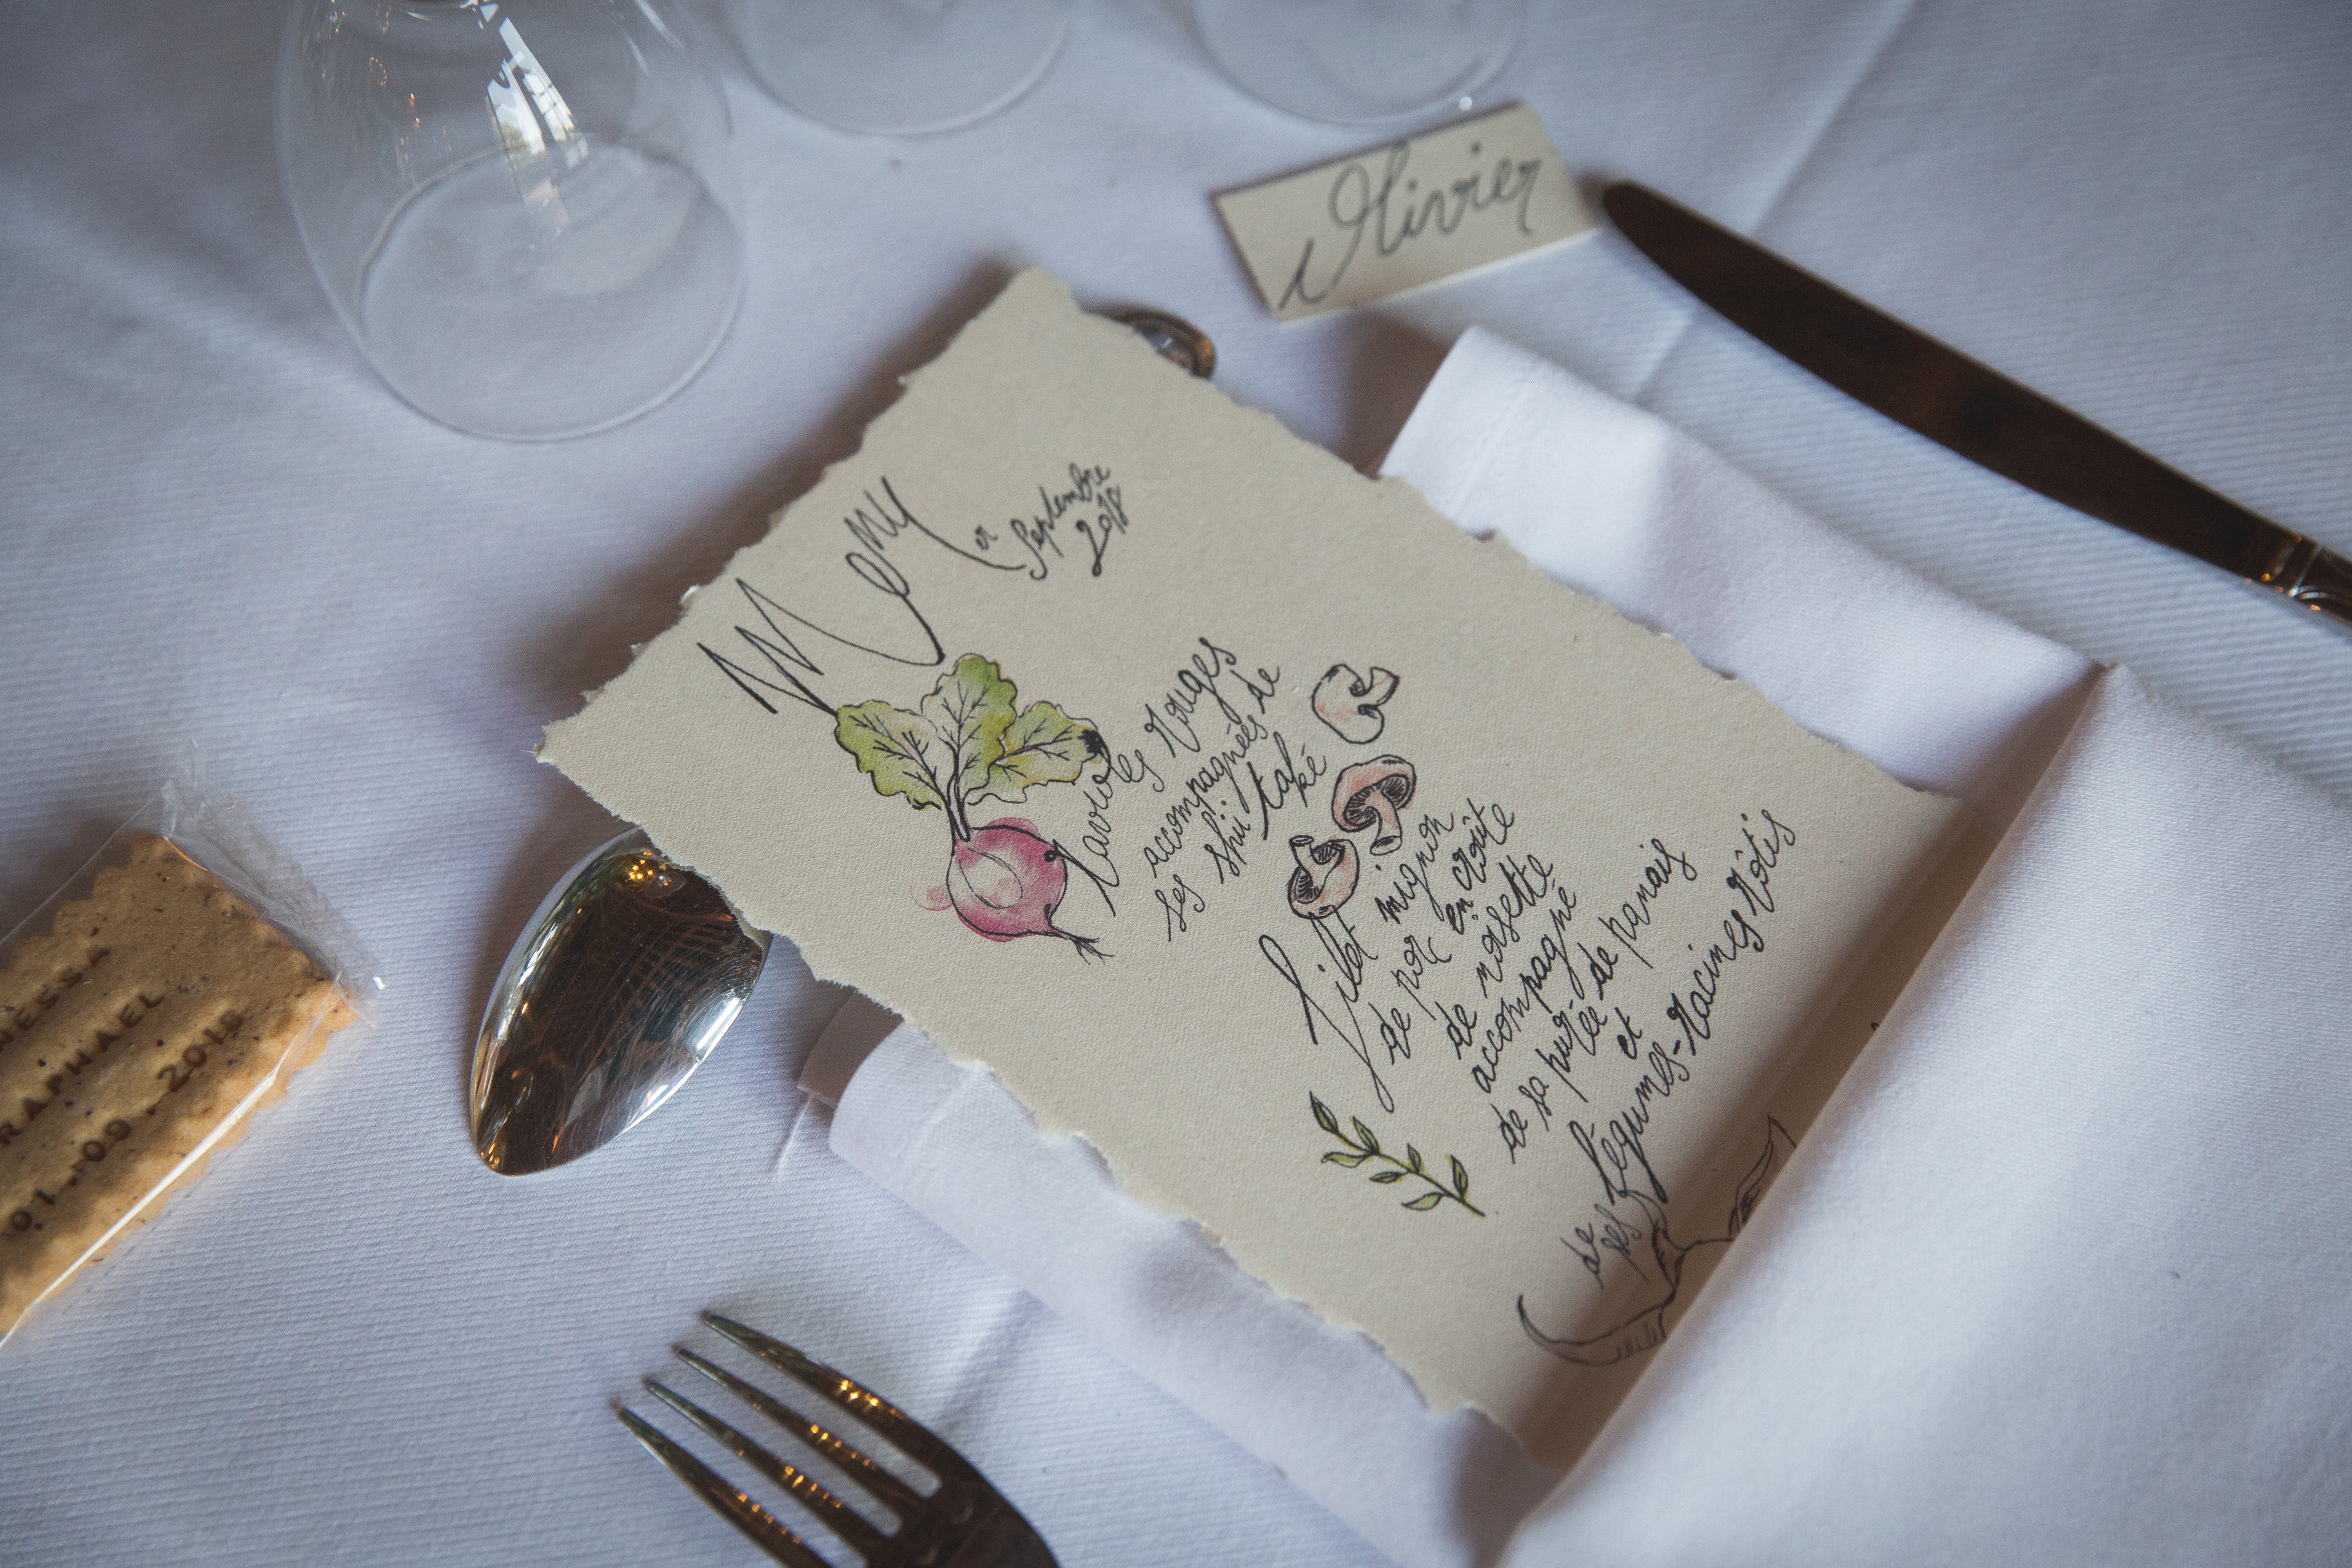 Olivier
Menu
1er Septembre
2018
Ravioles Rouges
accompagnées de
ses shii take
ké
Filet mignon
de porc en croûte
de noisette
accompagné
de sa purée de panais
et
de ses légumes-racines rôtis
NESSA
RAPHAEL
01.09.2018